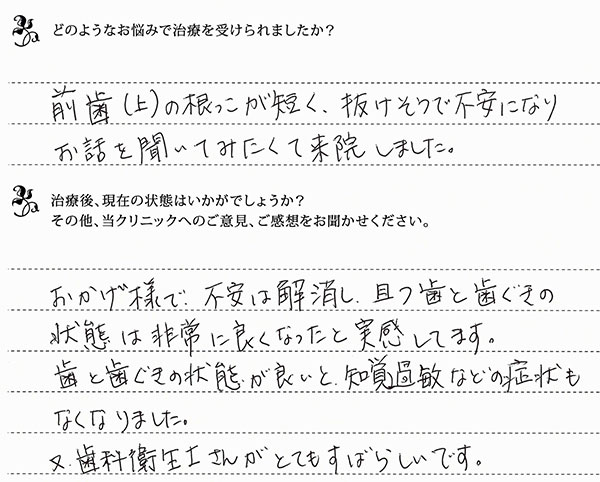 どのようなお悩みで治療を受けられましたか？
前歯（上）の根っこが短く、抜けそうで不安になり
お話を聞いてみたくて来院しました。
治療後、現在の状態はいかがでしょうか？
その他、当クリニックへのご意見、ご感想をお聞かせください。
おかげ様で、不安は解消し、且つ歯と歯ぐきの
状態は非常に良くなったと実感してます。
歯と歯ぐきの状態が良いと、知覚過敏などの症状も
なくなりました。
又、歯科衛生士さんがとてもすばらしいです。